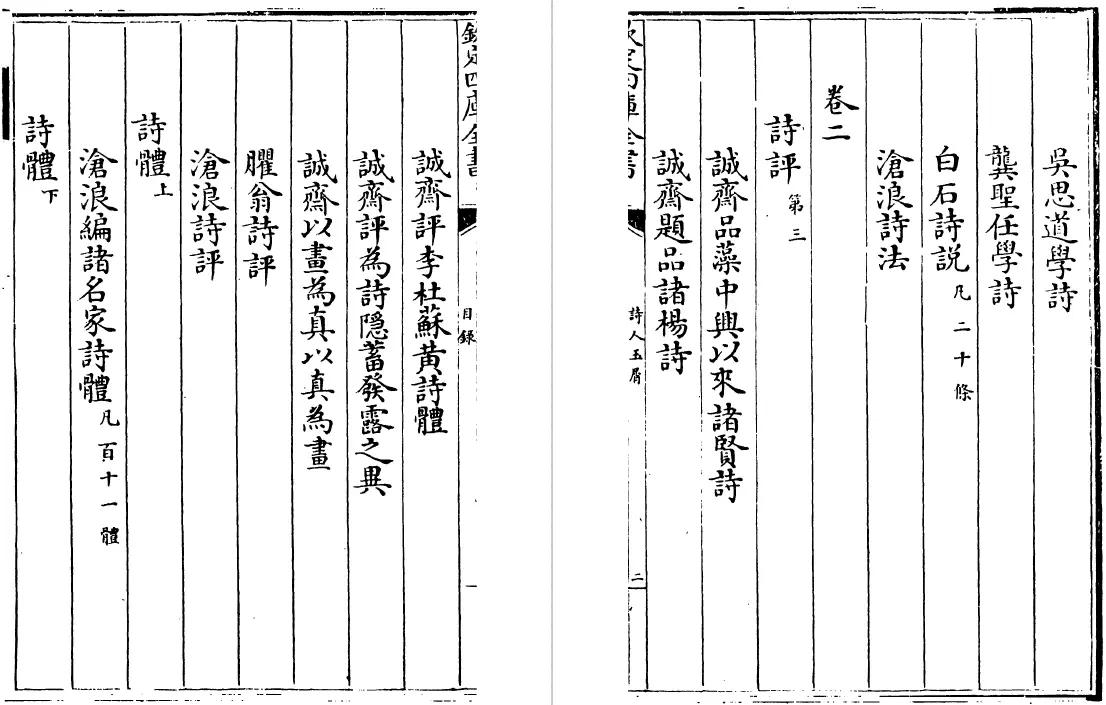 吳思道學詩
龔聖任學詩
白石詩説凡二十條
滄浪詩法
卷二
詩評第三
誠齋品藻中興以來諸賢詩
誠齋題品諸楊詩
欽定四庫全書
詩人玉屑
二
欽定四庫全書
目録
誠齋評李杜蘇黄詩體
誠齋評為詩隠蓄發露之異
誠齋以畫為真以真為畫
臞翁詩評
滄浪詩評
詩體上
滄浪編諸名家詩體凡百十一體
詩體下